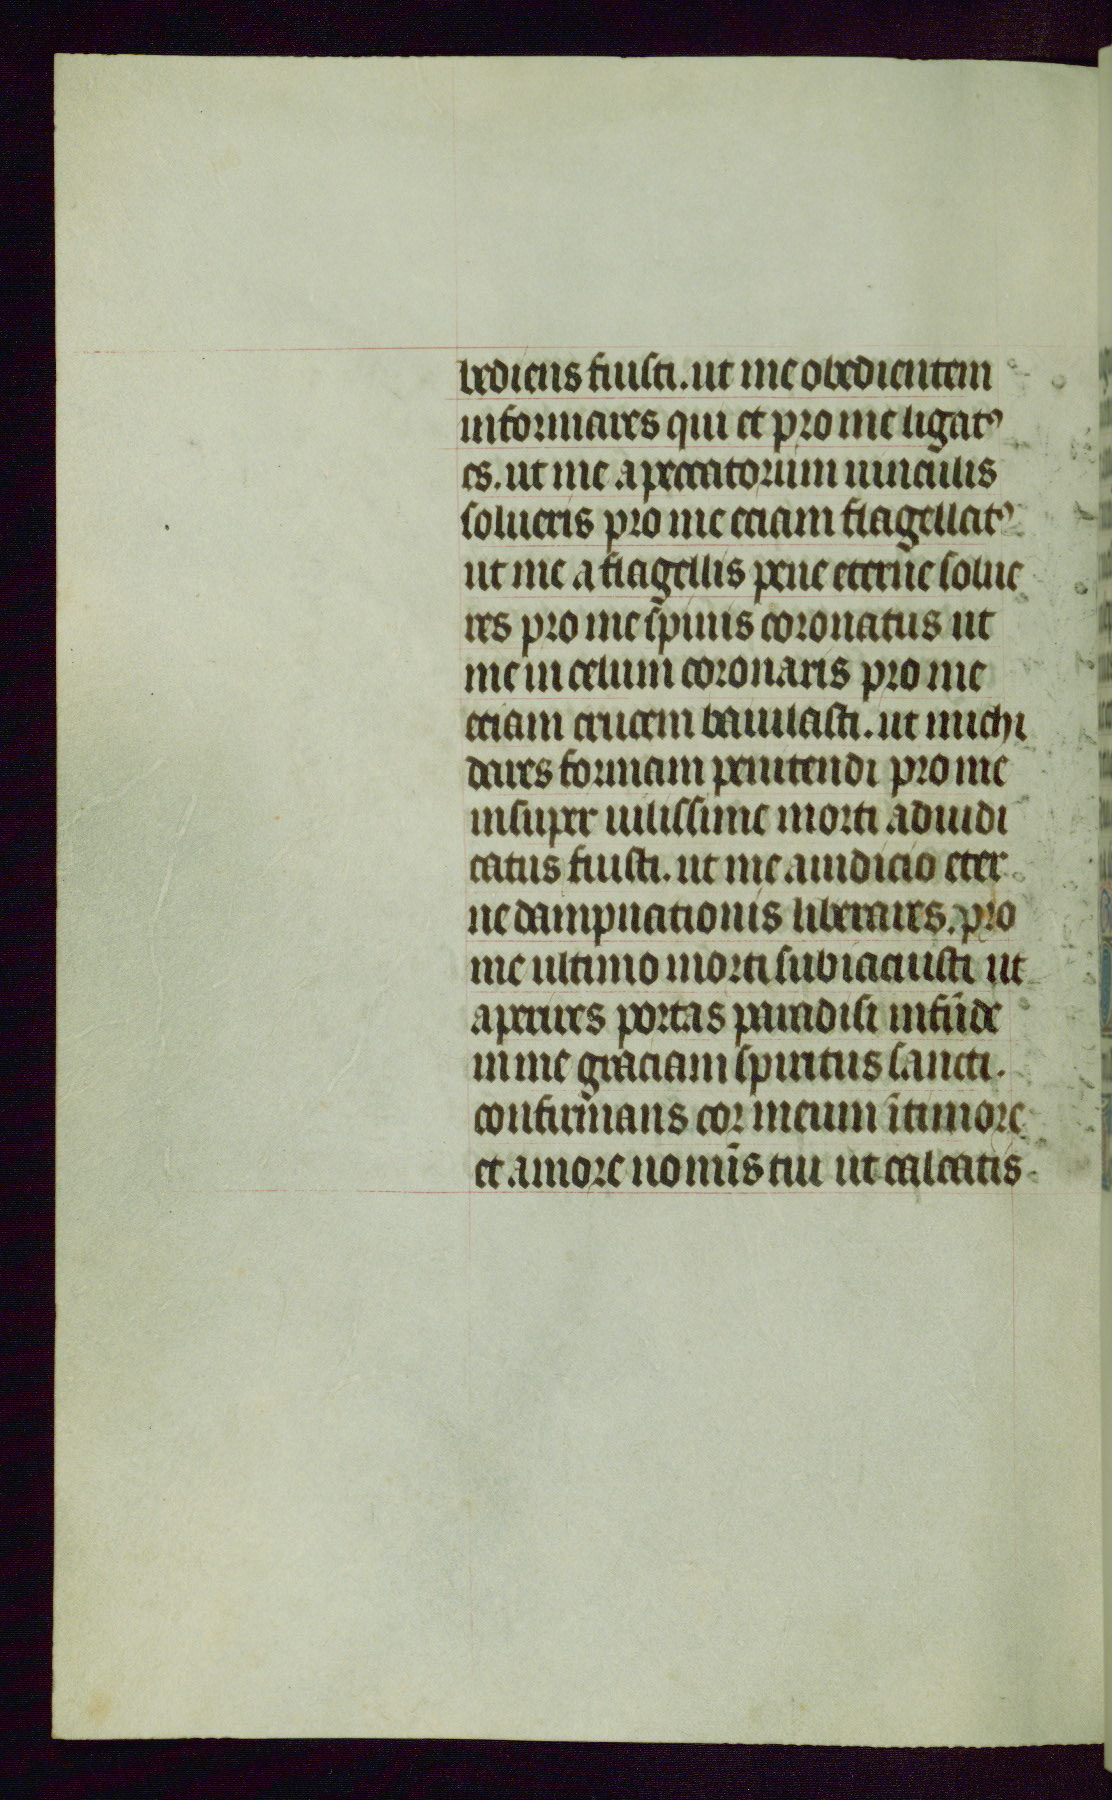 bediens fuisti. ut me obedientem
informares qui et pro me ligatꝰ
es. ut me a peccatorum uinculis
solueris pro me eciam flagellatꝰ
ut me a flagellis pene eterne solue
res pro me spinis coronatus ut
me in celum coronaris pro me
eciam crucem bauilasti. ut michi
dares formam penitendi pro me
insuper uilissime morti adiudi
catus fuisti. ut me a iudicio eter
ne dampnationis liberares. pro
me ultimo morti subiacuisti ut
aperires portas paradisi infūde
in me graciam spiritus sancti.
confirmans cor meum ītimore
et amore nomīs tui ut calcatis